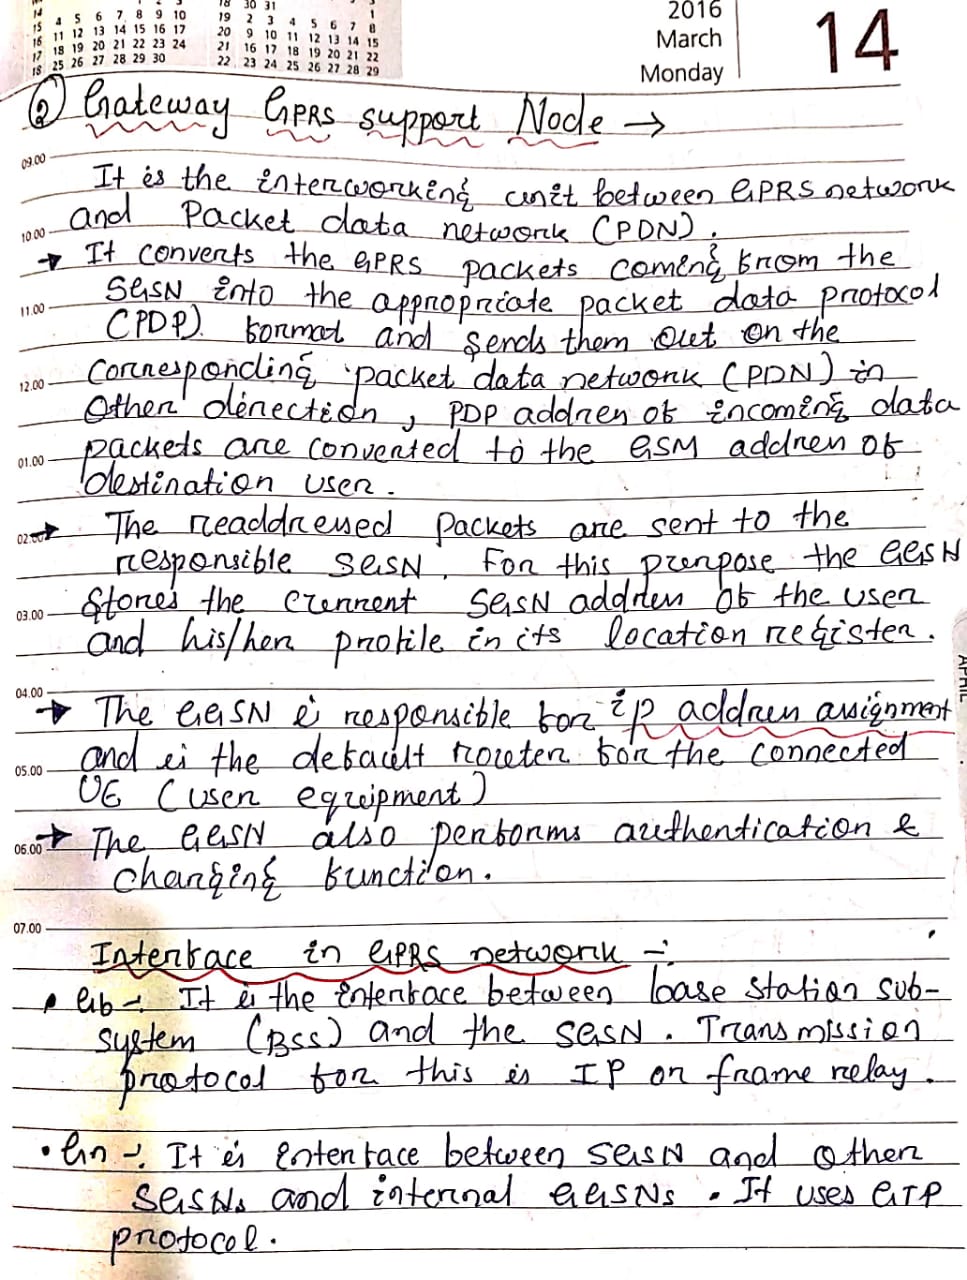 14
15 4 5 6 7 8 9 10
16 11 12 13 14 15 16 17
17 18 19 20 21 22 23 24
18 25 26 27 28 29 30
18 30 31 1
19 2 3 4 5 6 7 8
20 9 10 11 12 13 14 15
21 16 17 18 19 20 21 22
22 23 24 25 26 27 28 29
2016
March
Monday
14
② Gateway GPRS support Node →
09.00
It is the interworking unit between GPRS network
10.00 and Packet data network (PDN).
→ It converts the GPRS packets coming from the
11.00 SGSN into the appropriate packet data protocol
(PDP) format and sends them out on the
12.00 Corresponding packet data network (PDN) in
Other direction, PDP address of incoming data
01.00 packets are converted to the GSM address of
destination user.
02.00 → The readdressed packets are sent to the
responsible SGSN. For this purpose the GGSN
03.00 Stores the current SGSN address of the user
and his/her profile in its location register.
04.00
→ The GGSN is responsible for ip address assignment
05.00 and is the default router for the connected
UE (user equipment)
06.00 → The GGSN also performs authentication &
charging function.
07.00
Interface in GPRS network -:
• Gb -: It is the interface between base station sub-
system (BSS) and the SGSN. Transmission
protocol for this is IP or frame relay.
• Gn -: It is interface between SGSN and other
SGSNs and internal GGSNs. It uses GTP
protocol.
APRIL